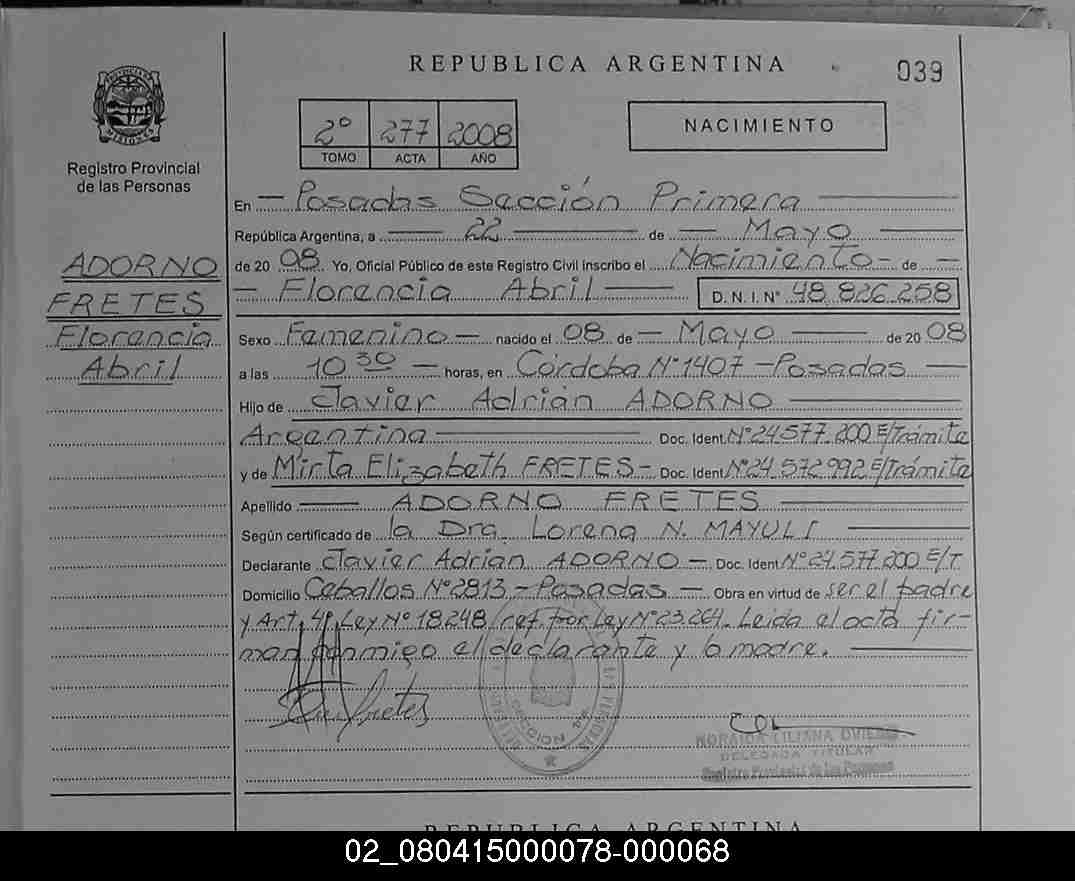 REPUBLICA ARGENTINA
039
2º 277 2008
TOMO ACTA AÑO
NACIMIENTO
PROVINCIA DE MISIONES
Registro Provincial
de las Personas
ADORNO
FRETES
Florencia
Abril
En Posadas Sección Primera
República Argentina, a 22 de Mayo
de 20 08. Yo, Oficial Público de este Registro Civil inscribo el Nacimiento de
Florencia Abril D.N.I. Nº 48.826.258
Sexo Femenino nacido el 08 de Mayo de 20 08
a las 10 30 horas, en Córdoba Nº 1407 - Posadas
Hijo de Javier Adrián ADORNO
Argentina Doc. Ident. Nº 24.577.200 E/Trámite
y de Mirta Elizabeth FRETES - Doc. Ident. Nº 24.572.992 E/Trámite
Apellido ADORNO FRETES
Según certificado de la Dra. Lorena N. MAYULI
Declarante Javier Adrian ADORNO - Doc. Ident. Nº 24.577.200 E/T.
Domicilio Ceballos Nº 2813 - Posadas - Obra en virtud de ser el padre
y Art. 4º Ley Nº 18.248, ref. por Ley Nº 23.264. Leida el acta fir-
man conmigo el declarante y la madre.
Fretes
NORAIDA LILIANA
DELEGADA TITULAR
Registro Provincial de las Personas
REPUBLICA ARGENTINA
02_080415000078-000068